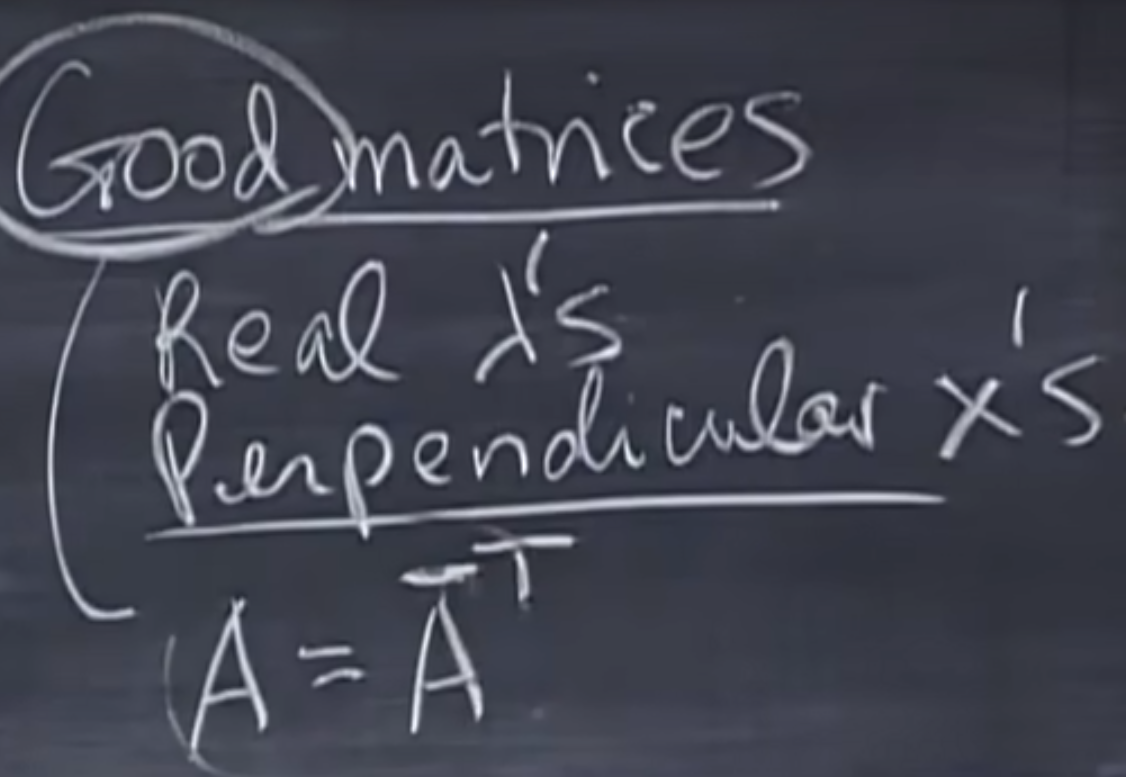 Good matrices
Real λ's
Perpendicular x's
A = A̅ᵀ